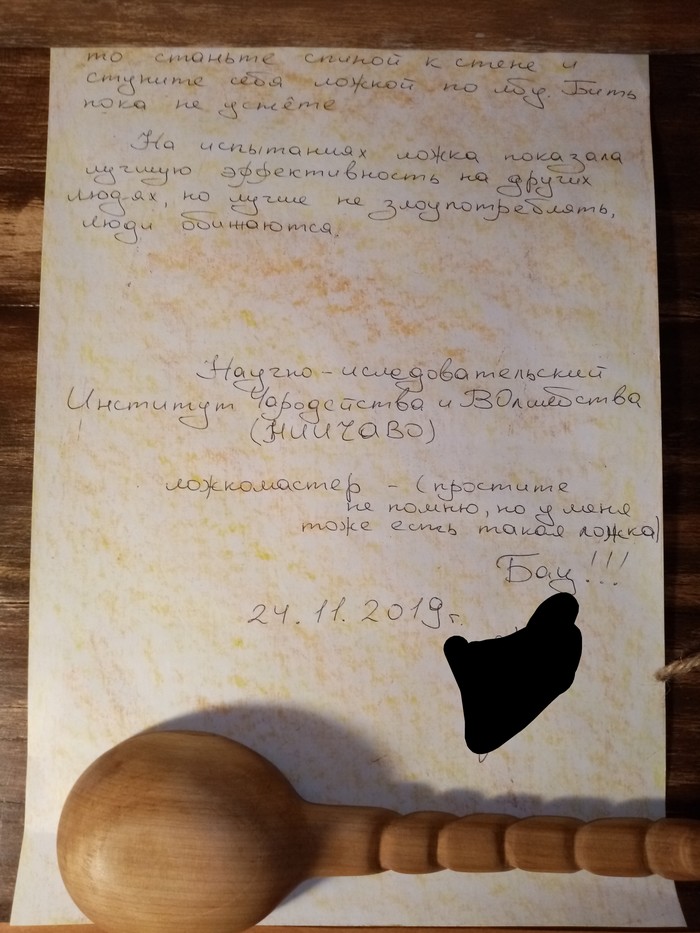 то станьте спиной к стене и
стуните себя ложкой по лбу. Бить
пока не уснёте
На испытаниях ложка показала
лучшую эффективность на других
людях, но лучше не злоупотреблять,
люди обижаются.
Научно-иследовательский
Институт Чародейства и ВОлшебства
(НИИЧАВО)
ложкомастер - (простите
не помню, но у меня
тоже есть такая ложка)
Бац!!!
24.11.2019г.